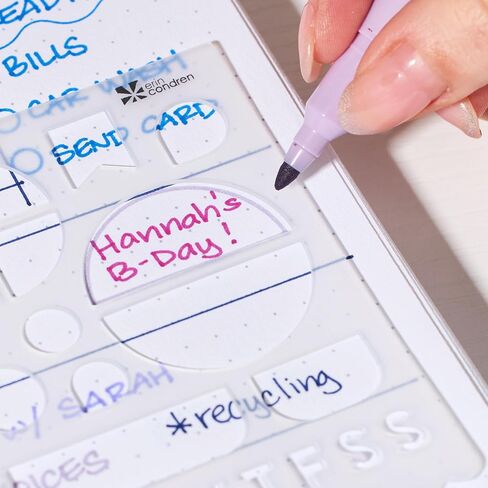 BILLS
CAR WASH
SEND CARD
erin
condren
Hannah's
B-Day!
w/ SARAH
*recycling